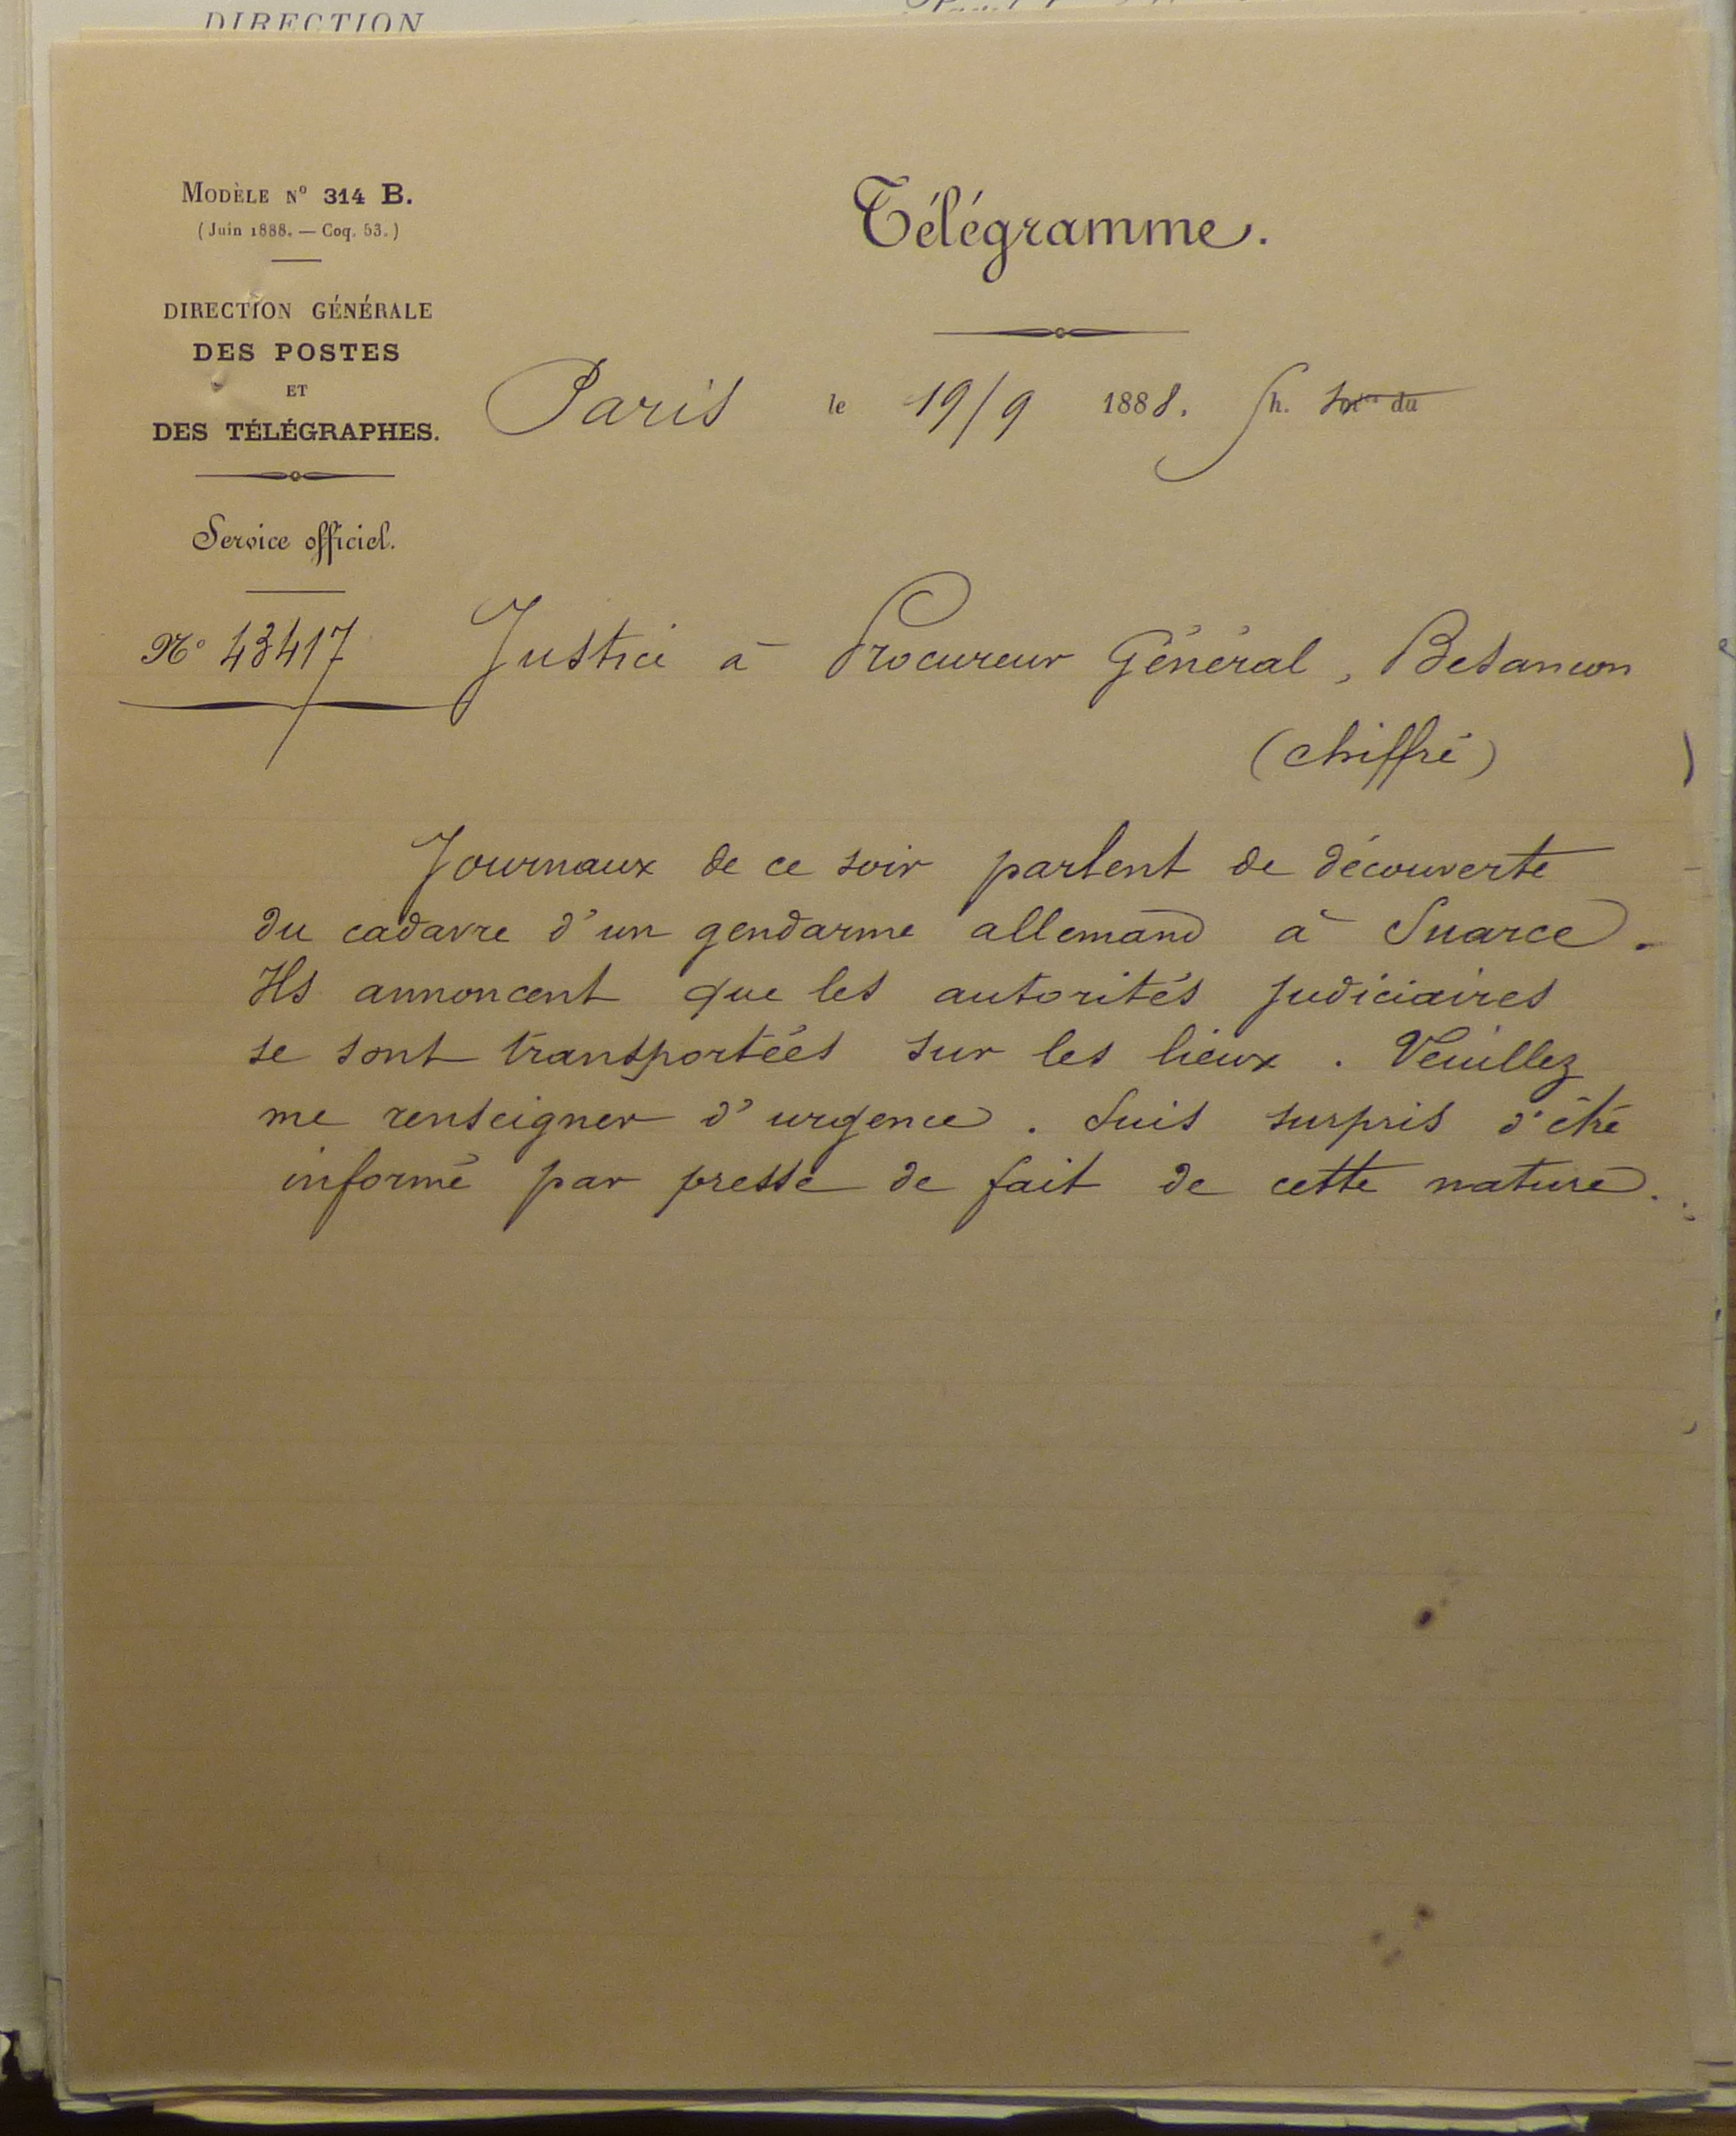 DIRECTION
MODÈLE Nº 314 B.
(Juin 1888. — Coq. 53.)
Télégramme.
DIRECTION GÉNÉRALE
DES POSTES
ET
DES TÉLÉGRAPHES.
Paris le 19/9 1888. h. du
Service officiel.
Nº 43417 Justice à Procureur Général, Besancon
(chiffré)
Journaux de ce soir parlent de découverte
du cadavre d'un gendarme allemand à Suarce.
Ils annoncent que les autorités judiciaires
se sont transportées sur les lieux. Veuillez
me renseigner d'urgence. Suis surpris d'être
informé par presse de fait de cette nature.